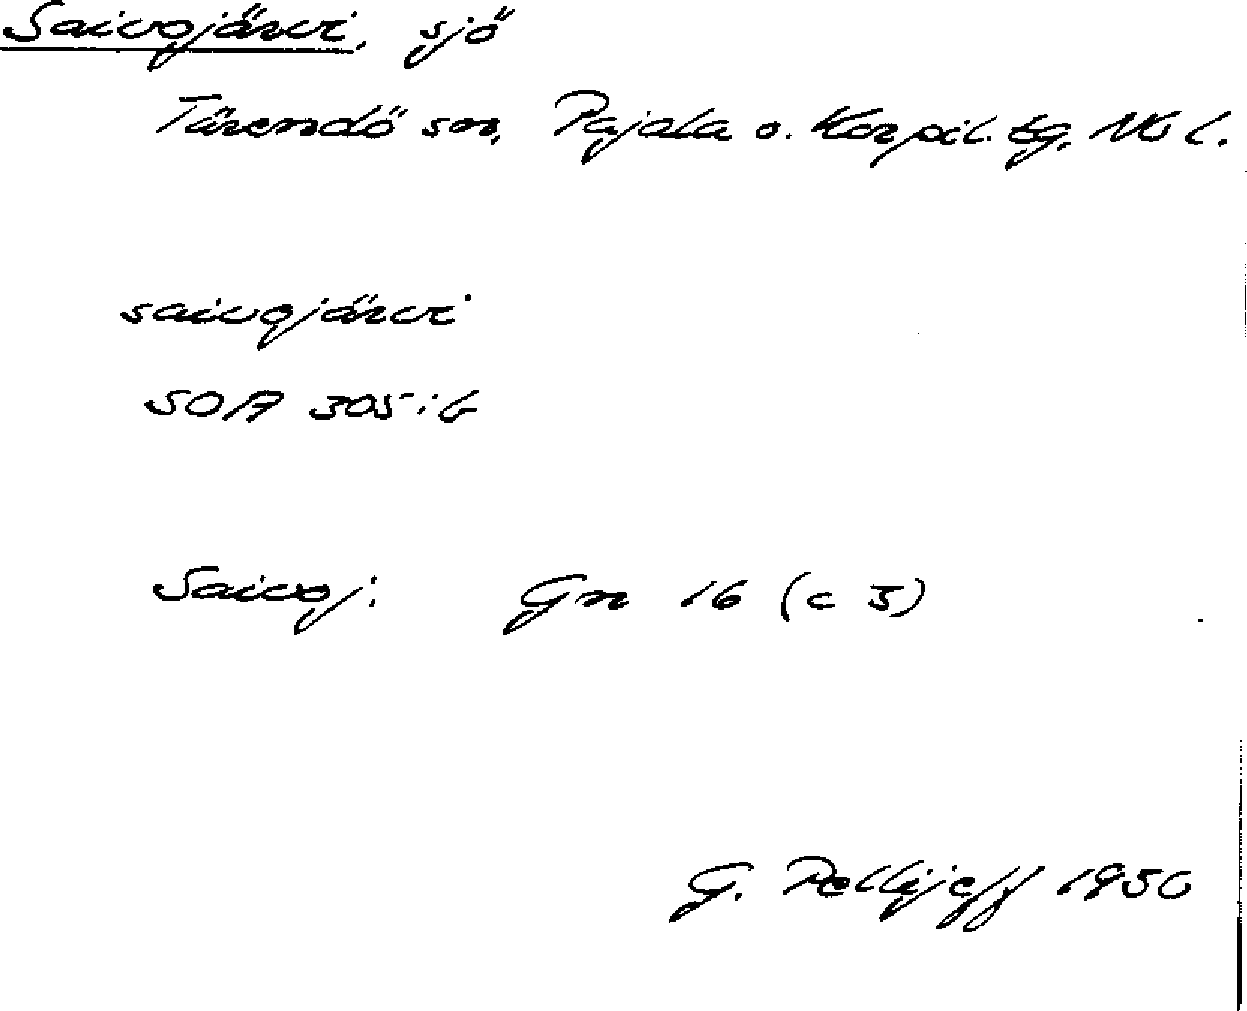 Saivojärvi, sjö
Tärendö sn, Pajala o. Korpil. tg, Nb l.
saivojärvi
SOA 305:6
Saivoj: Gn 16 (c 5)
G. Pellijeff 1950